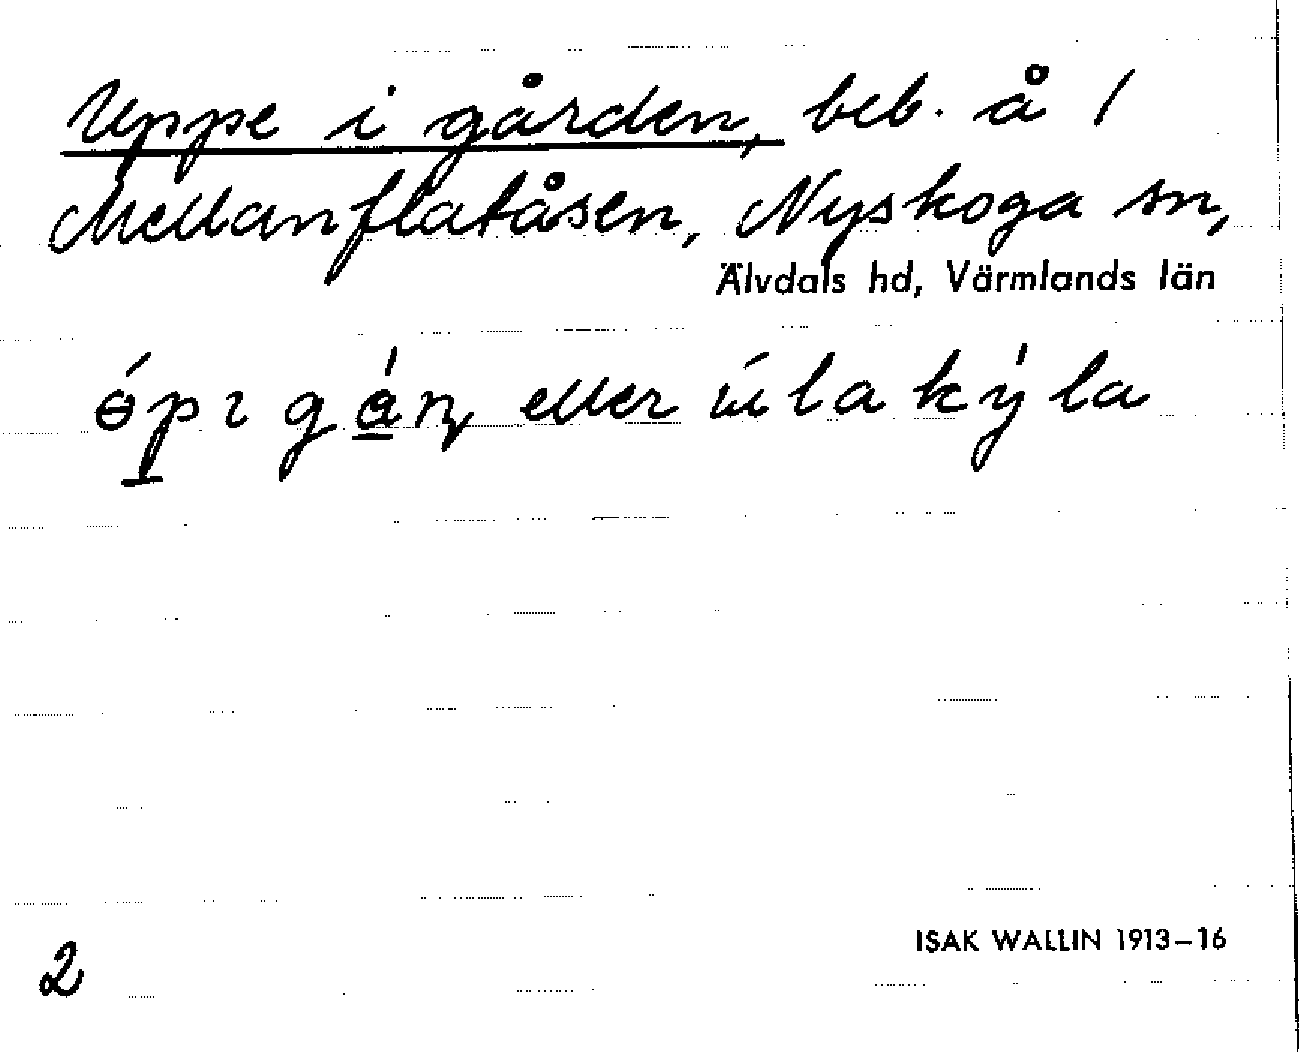 Uppe i gården, beb. å /
Mellanflatåsen, Nyskoga sn,
Älvdals hd, Värmlands län
eller
ISAK WALLIN 1913–16
2